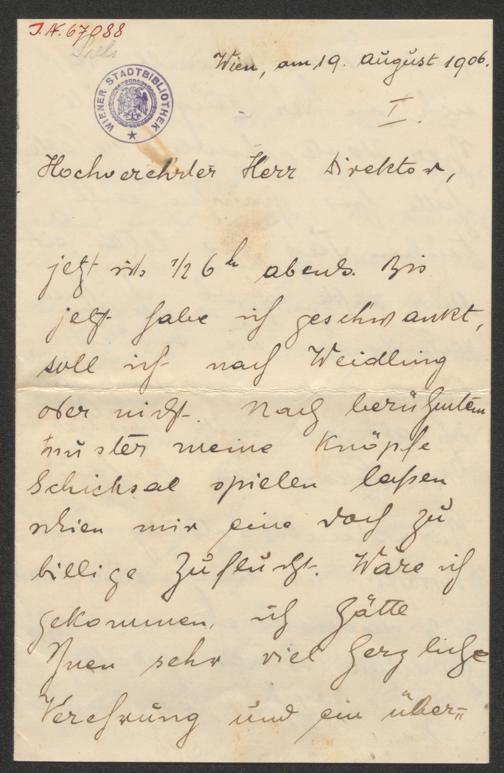 J.N. 67088
WIENER STADTBIBLIOTHEK
Wien, am 19. August 1906.
I.
Hochverehrter Herr Direktor,
jetzt ists 1/2 6h abends. Bis
jetzt habe ich geschwankt,
soll ich nach Weidling
oder nicht. Nach berühmtem
Muster meine Knöpfe
Schicksal spielen laßen
schien mir eine doch zu
billige Zuflucht. Wäre ich
gekommen, ich hätte
Ihnen sehr viel herzliche
Verehrung und ein über=